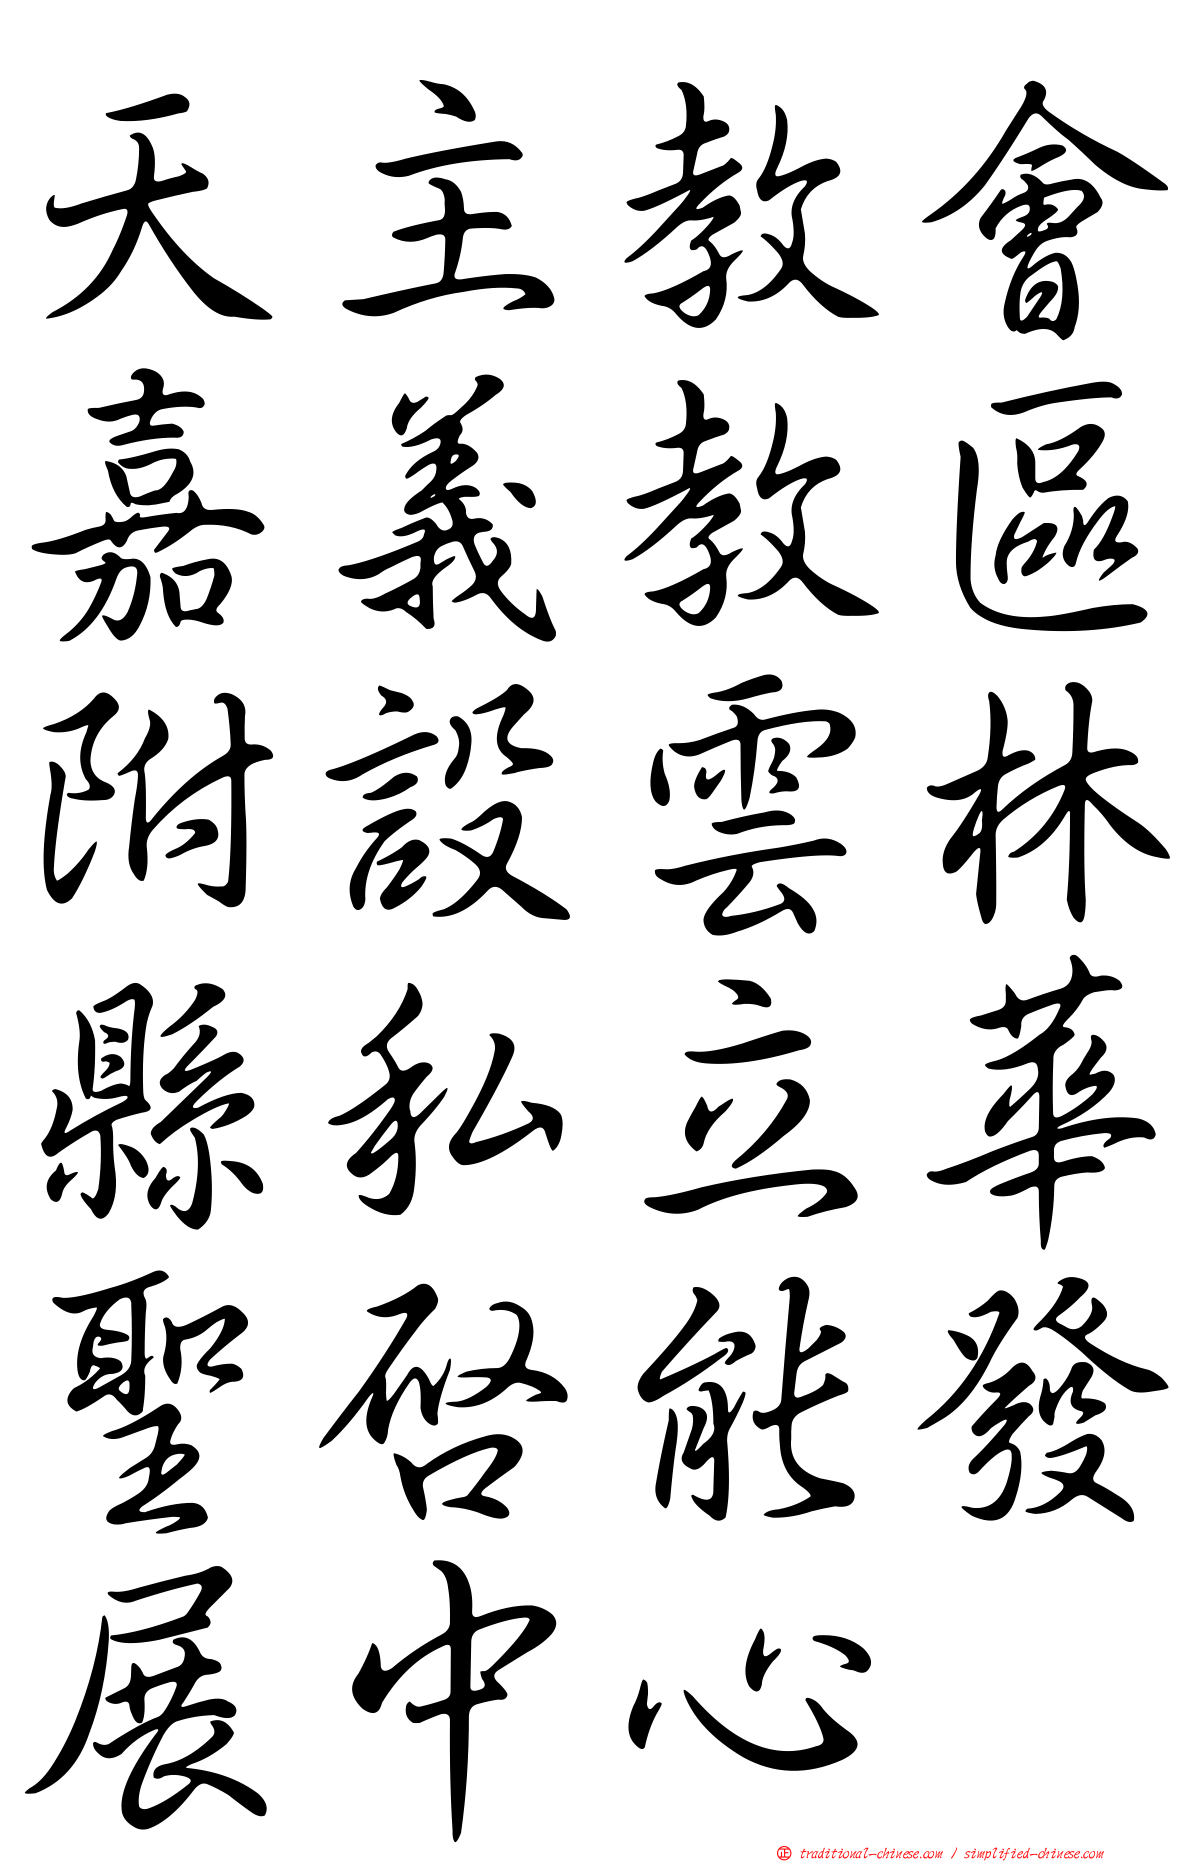 天主教會
嘉義教區
附設雲林
縣私立華
聖啓能發
展中心
正 traditional-chinese.com / simplified-chinese.com